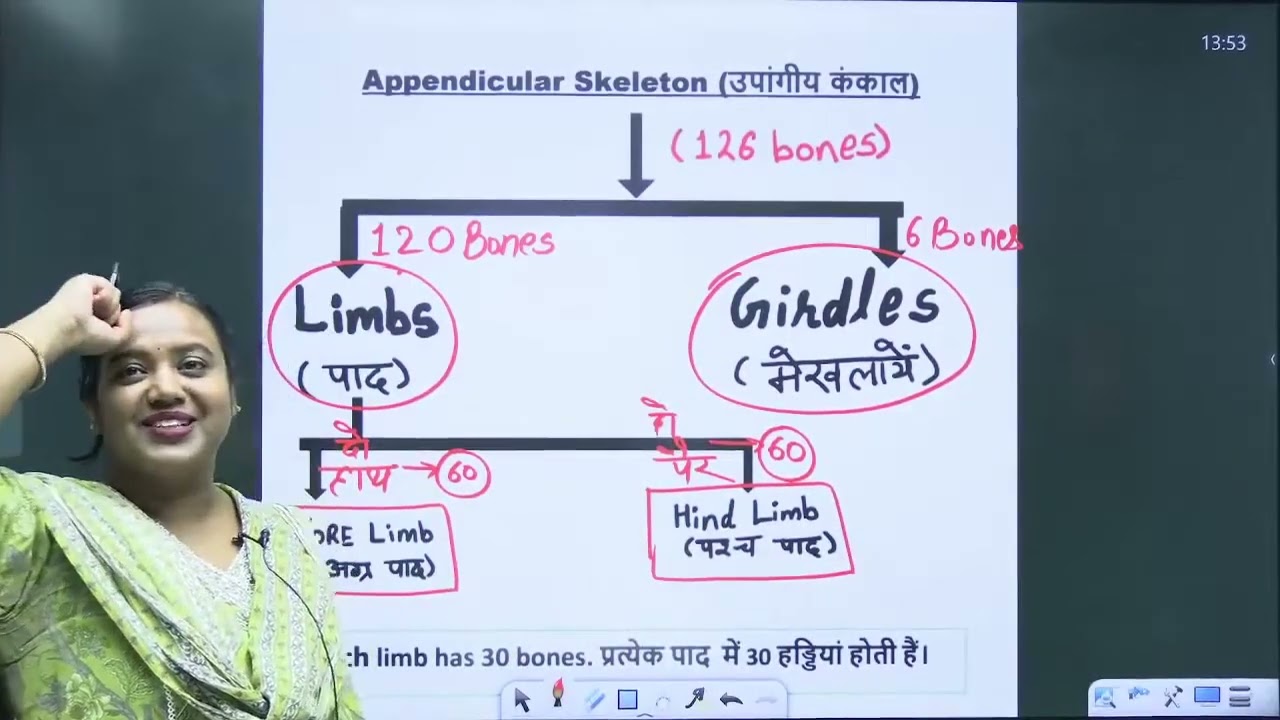 13:53
Appendicular Skeleton (उपांगीय कंकाल)
(126 bones)
120 Bones
6 Bones
Limbs
(पाद)
Girdles
(मेखलायें)
दो
हाथ → 60
पैर → 60
ORE Limb
अग्र पाद)
Hind Limb
(पश्च पाद)
ch limb has 30 bones. प्रत्येक पाद में 30 हड्डियां होती हैं।